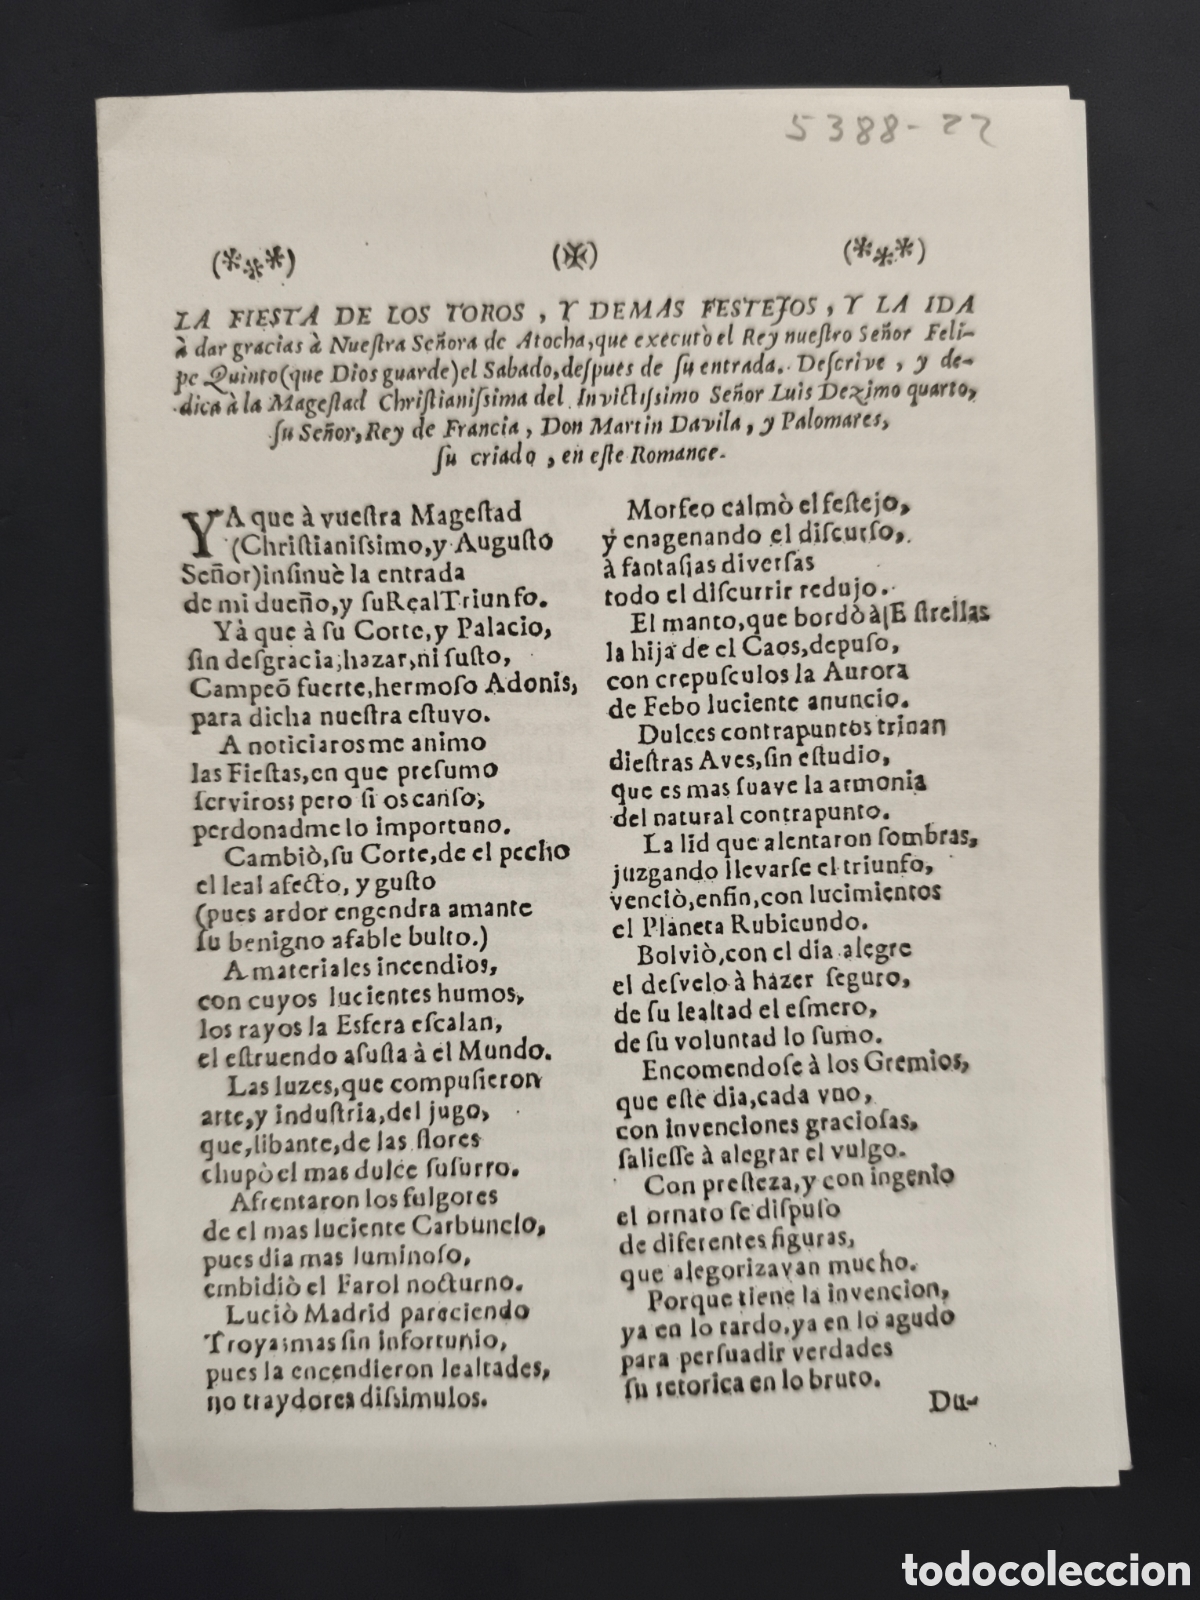 5388-22
(***) (✠) (***)
LA FIESTA DE LOS TOROS, Y DEMAS FESTEJOS, Y LA IDA
à dar gracias à Nueſtra Señora de Atocha, que executò el Rey nueſtro Señor Feli-
pe Quinto (que Dios guarde) el Sabado, deſpues de ſu entrada. Deſcrive, y de-
dica à la Mageſtad Chriſtianiſsima del Invictiſsimo Señor Luis Dezimo quarto,
ſu Señor, Rey de Francia, Don Martin Davila, y Palomares,
ſu criado, en eſte Romance.
YA que à vueſtra Mageſtad
(Chriſtianiſsimo, y Auguſto
Señor) inſinuè la entrada
de mi dueño, y ſu Real Triunfo.
Yà que à ſu Corte, y Palacio,
ſin deſgracia, hazar, ni ſuſto,
Campeõ fuerte, hermoſo Adonis,
para dicha nueſtra eſtuvo.
A noticiaros me animo
las Fieſtas, en que preſumo
ſerviros; pero ſi os canſo,
perdonadme lo importuno.
Cambiò, ſu Corte, de el pecho
el leal afecto, y guſto
(pues ardor engendra amante
ſu benigno afable bulto.)
A materiales incendios,
con cuyos lucientes humos,
los rayos la Esfera eſcalan,
el eſtruendo aſuſta à el Mundo.
Las luzes, que compuſieron
arte, y induſtria, del jugo,
que, libante, de las flores
chupò el mas dulce ſuſurro.
Afrentaron los fulgores
de el mas luciente Carbunclo,
pues dia mas luminoſo,
embidiò el Farol nocturno.
Luciò Madrid pareciendo
Troya; mas ſin infortunio,
pues la encendieron lealtades,
no traydores diſsimulos.
Morfeo calmò el feſtejo,
y enagenando el diſcurſo,
à fantaſias diverſas
todo el diſcurrir redujo.
El manto, que bordò à Eſtrellas
la hija de el Caos, depuſo,
con crepuſculos la Aurora
de Febo luciente anuncio.
Dulces contrapuntos trinan
dieſtras Aves, ſin eſtudio,
que es mas ſuave la armonia
del natural contrapunto.
La lid que alentaron ſombras,
juzgando llevarſe el triunfo,
venciò, enfin, con lucimientos
el Planeta Rubicundo.
Bolviò, con el dia alegre
el deſvelo à hazer ſeguro,
de ſu lealtad el eſmero,
de ſu voluntad lo ſumo.
Encomendoſe à los Gremios,
que eſte dia, cada vno,
con invenciones gracioſas,
ſalieſſe à alegrar el vulgo.
Con preſteza, y con ingenio
el ornato ſe diſpuſo
de diferentes figuras,
que alegorizavan mucho.
Porque tiene la invencion,
ya en lo tardo, ya en lo agudo
para perſuadir verdades
ſu retorica en lo bruto.
Du-
todocoleccion